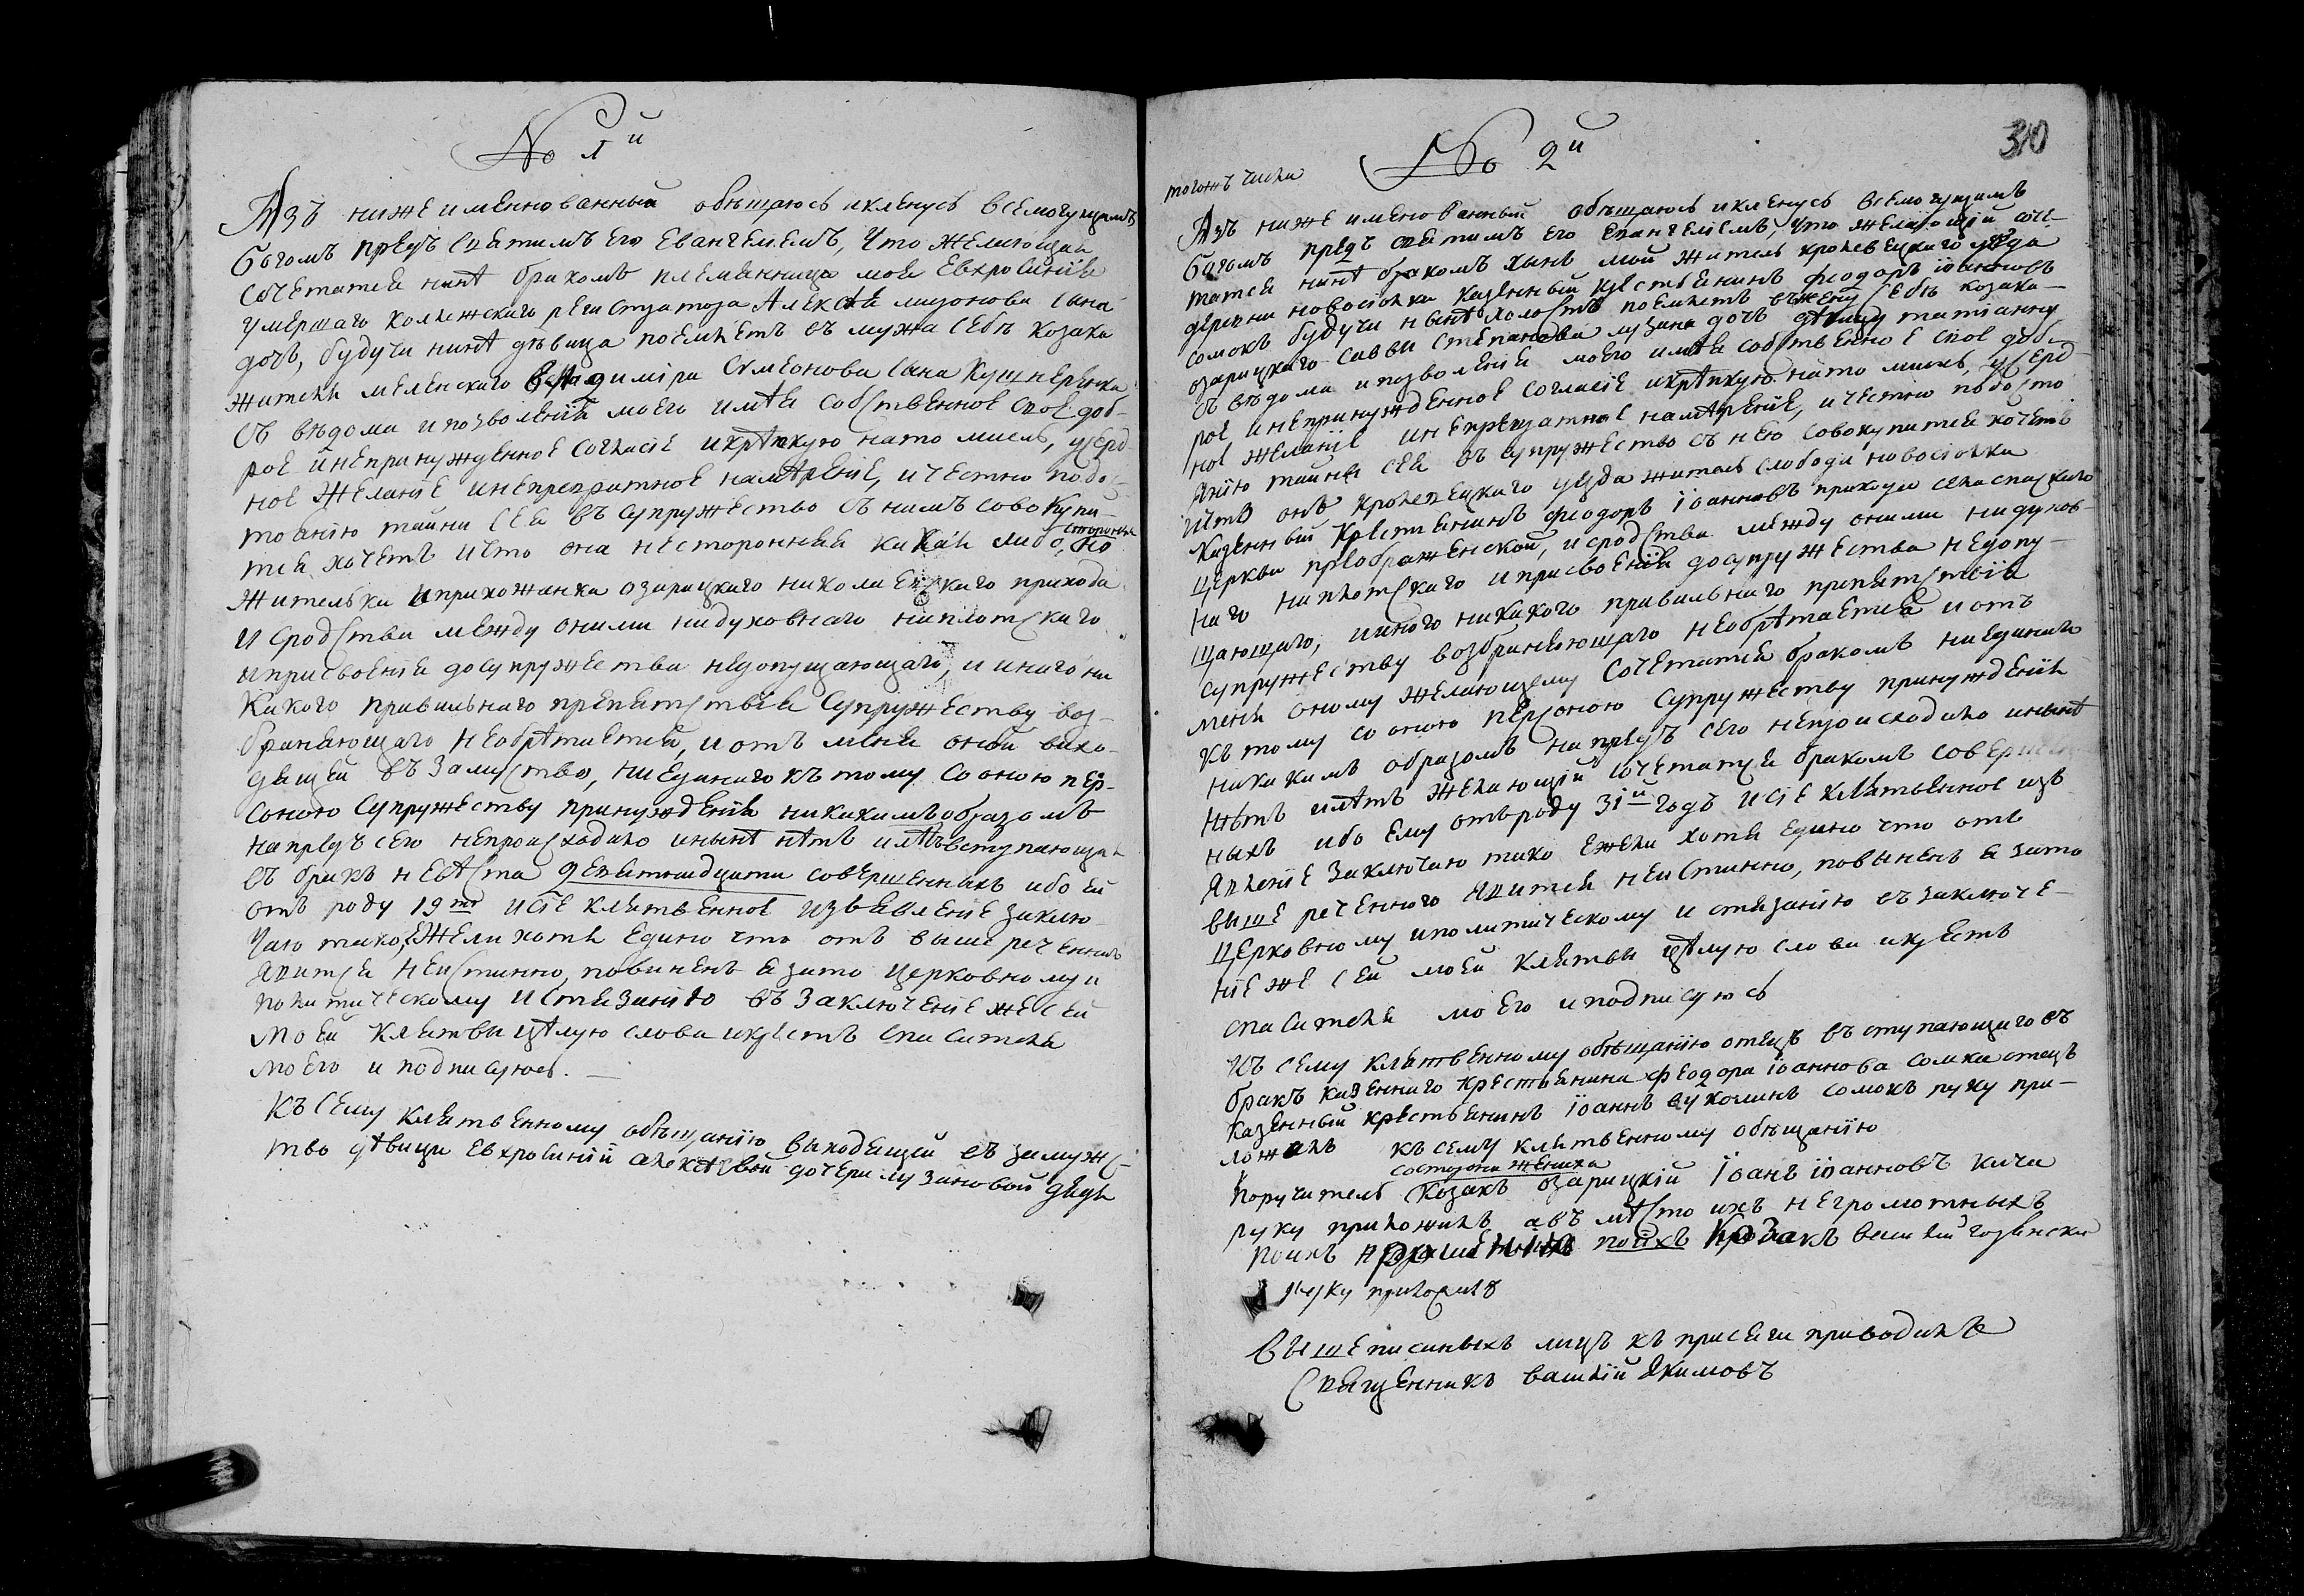 № 1й
Азъ нижеименнованный обѣщаюсь иклянусь всемогущимъ
Богомъ предъ святимъ его Евангелиемъ, что желающая
сочетатся нинѣ бракомъ племянница моя Евхросинія
умершаго колежскаго регистратора Алексѣя музонова сина
дочь, будучи нинѣ дѣвица поемлетъ въ мужа себѣ козака
жителя меленскаго владиміра Сумеонова сина Кушнеренка
съ вѣдома ипозволенія моего имѣя собственное свое доб-
рое инепринужденное согласіе икрѣпкую нато мисль, усерд
ное желаніе инепревратное намѣреніе, ичестно подос-
тоанію тайни сея въ супружество снимъ совокупи-
тся хочетъ ичто она нестороння какая либо, но
жителька иприхожанка озарицкаго николаевскаго прихода
и сродства между оними нидуховнаго ниплотскаго
иприсвоенія досупружества недопущающаго, и иного ни
какого правильнаго препятствія супружеству воз-
браняющаго необрѣтается, и отъ мене оной вихо-
дящей въ замуство, ниединаго къ тому со оною пер-
соною супружеству принужденія никакимъ образомъ
напредъ сего непроисходило инынѣ нѣтъ илѣтъ вступающая
въ бракъ невѣста девятнадцати совершенныхъ ибо ей
отъ роду 19то исіе клятвенное изъявленіе заклю
чаю тако, ежели хотя едино что отъ вышереченныхъ
явится неистинно, повиненъ я зато церковному и
политическому истязанію въ заключеніе же сей
моей клятвы цѣлую слова икрестъ спасителя
моего и подписуюсь.
Къ сему клятвенному обѣщанію выходящей въ замужс-
тво дѣвици Евхросиніи алексѣевой дочери музановой дядя
310
№ 2й
тогожъ числа
Азъ нижеименованный обѣщаюсь иклянусь всемогущимъ
Богомъ предъ святимъ его евангеліемъ, что желающій соче-
татся нинѣ бракомъ сынъ мой житель кролевецкаго уѣзда
деревни новосіолки казенный крестьянинъ феодоръ іоанновъ
сомокъ будучи нынѣ холостъ поемлетъ въжену себѣ козака
озарицкаго саввы степанова музина дочь дѣвицу татіанну
съ вѣдома ипозволенія моего имѣя собственное свое доб-
рое инепринужденное согласіе икрѣпкую нато мисль, усерд
ное желаніе инепревратное намѣреніе, ичестно подосто
янію тайны сея въ супружество съ нею совокупится хочетъ
ичто онъ кролевецкаго уезда житель слободи новосіолки
Казенный крестьянинъ феодоръ іоанновъ прихода села спаскаго
церкви преображенской, исродства между оними нидухов-
наго ниплотскаго иприсвоенія досупружества недопу-
щающаго, ииного никакого правильнаго препятствія
супружеству возбраняющаго необрѣтается иотъ
меня оному желающему сочетатся бракомъ ниединаго
къ тому со оною персоною супружеству принужденія
никакимъ образомъ напредъ сего непроисходило инынѣ
нѣтъ илѣтъ желающій сочетатся бракомъ соверш
ныхъ ибо ему отъроду 31й годъ исіе клятвенное изъ
явленіе заключаю тако ежели хотя едино что отъ
выше реченного явится неистинно, повиненъ я зато
церковному иполитическому истязанію въ заключе-
ніе же сей моей клятвы цѣлую слова икрестъ
спасителя моего иподписуюсь
Къ сему клятвенному обѣщанію отецъ въступающаго въ
бракъ казеннаго крестьянина феодора іоаннова сомка отецъ
казенный крестьянинъ іоаннъ вуколинъ сомокъ руку при-
ложилъ къ сему клятвенному обѣщанію
состороны жениха
поручитель козакъ озарицкій Іоанъ іоанновъ кича
руку приложилъ авъ мѣсто ихъ неграмотныхъ
поихъ прошенію козакъ василій
руку приложилъ
Вышеписаныхъ лицъ къ присяги приводилъ
Священникъ василій Якимовъ